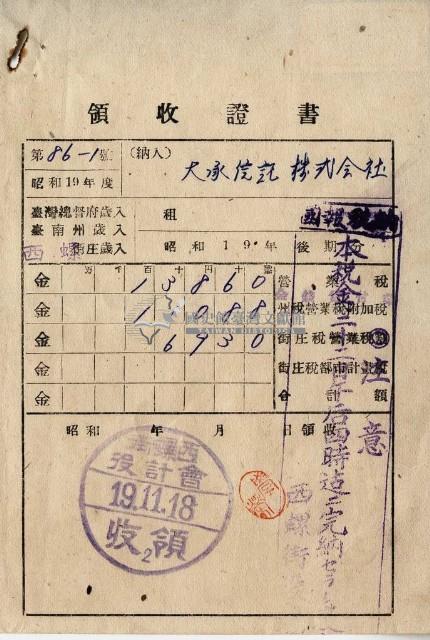 領收證書
第86-1號
(納入)
昭和19年度
大承信託株式会社
臺灣總督府歲入
臺南州歲入
西螺街庄歲入
租
昭和19年後期分
金 13860 營業稅
金 1088 州稅營業稅附加稅
金 6930 街庄稅營業稅
金 街庄稅都市計畫稅
金 合計額
昭和 年 月 日領收
注意
本稅金二十二日午后四時迄ニ完納セラ
西螺街
西螺街
會計役
19.11.18
領收
2
國史館臺灣文獻館
TAIWAN HISTORICA